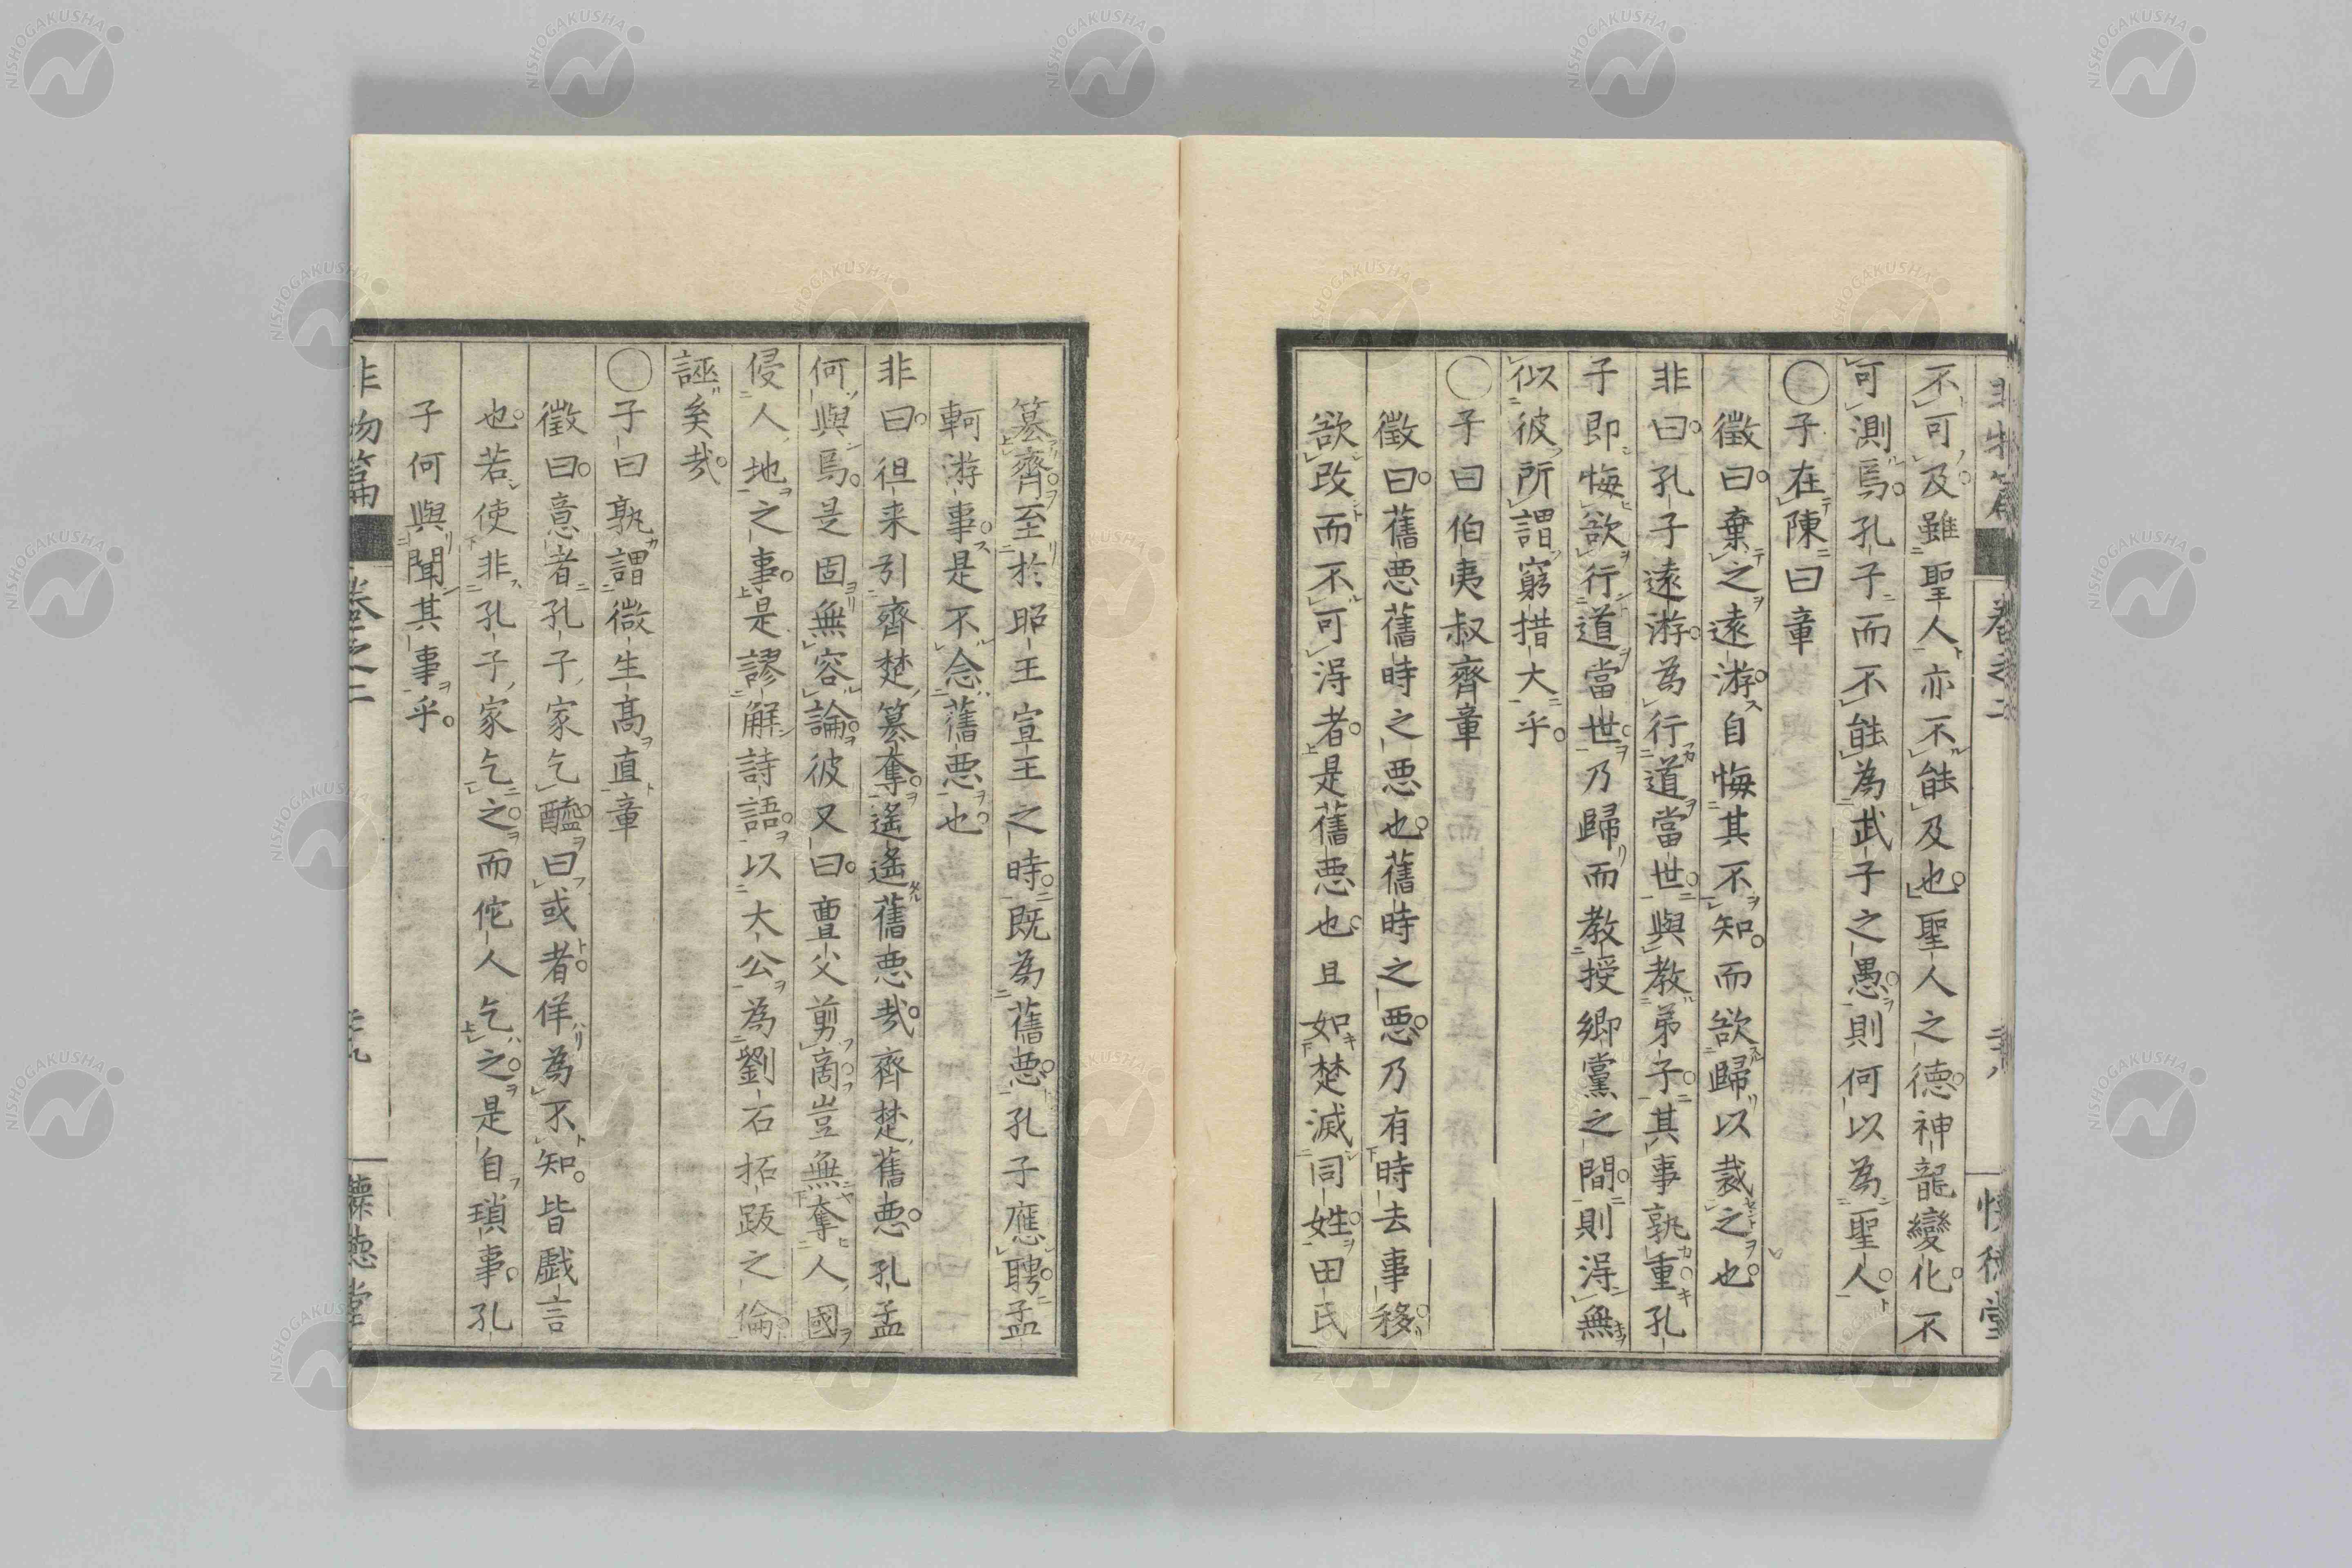 不可及雖聖人亦不能及也聖人之德神龍變化不
可測焉孔子而不能為武子之愚則何以為聖人
○子在陳曰章
徵曰棄之遠游自悔其不知而欲歸以裁之也
非曰孔子遠游為行道當世與教弟子其事孰重孔
子即悔欲行道當世乃歸而教授鄉黨之間則得無
似彼所謂窮措大乎
○子曰伯夷叔齊章
徵曰舊悪舊時之悪也舊時之悪乃有時去事移
欲改而不可得者是舊悪也且如楚滅同姓田氏
簒齊至於昭王宣王之時既為舊悪孔子應聘孟
軻游事是不念舊悪也
非曰徂来引齊楚簒奪遙遙舊悪哉齊楚舊悪孔孟
何與焉是固無容論彼又曰亶父剪啇豈無奪人國
侵人地之事是謬解詩語以大公為劉石拓跋之倫
誣矣哉
○子曰孰謂微生高直章
徵曰意者孔子家乞醯曰或者佯為不知皆戯言
也若使非孔子家乞之而佗人乞之是自瑣事孔
子何與聞其事乎
非物篇 卷之二 懷德堂
NISHOGAKUSHA